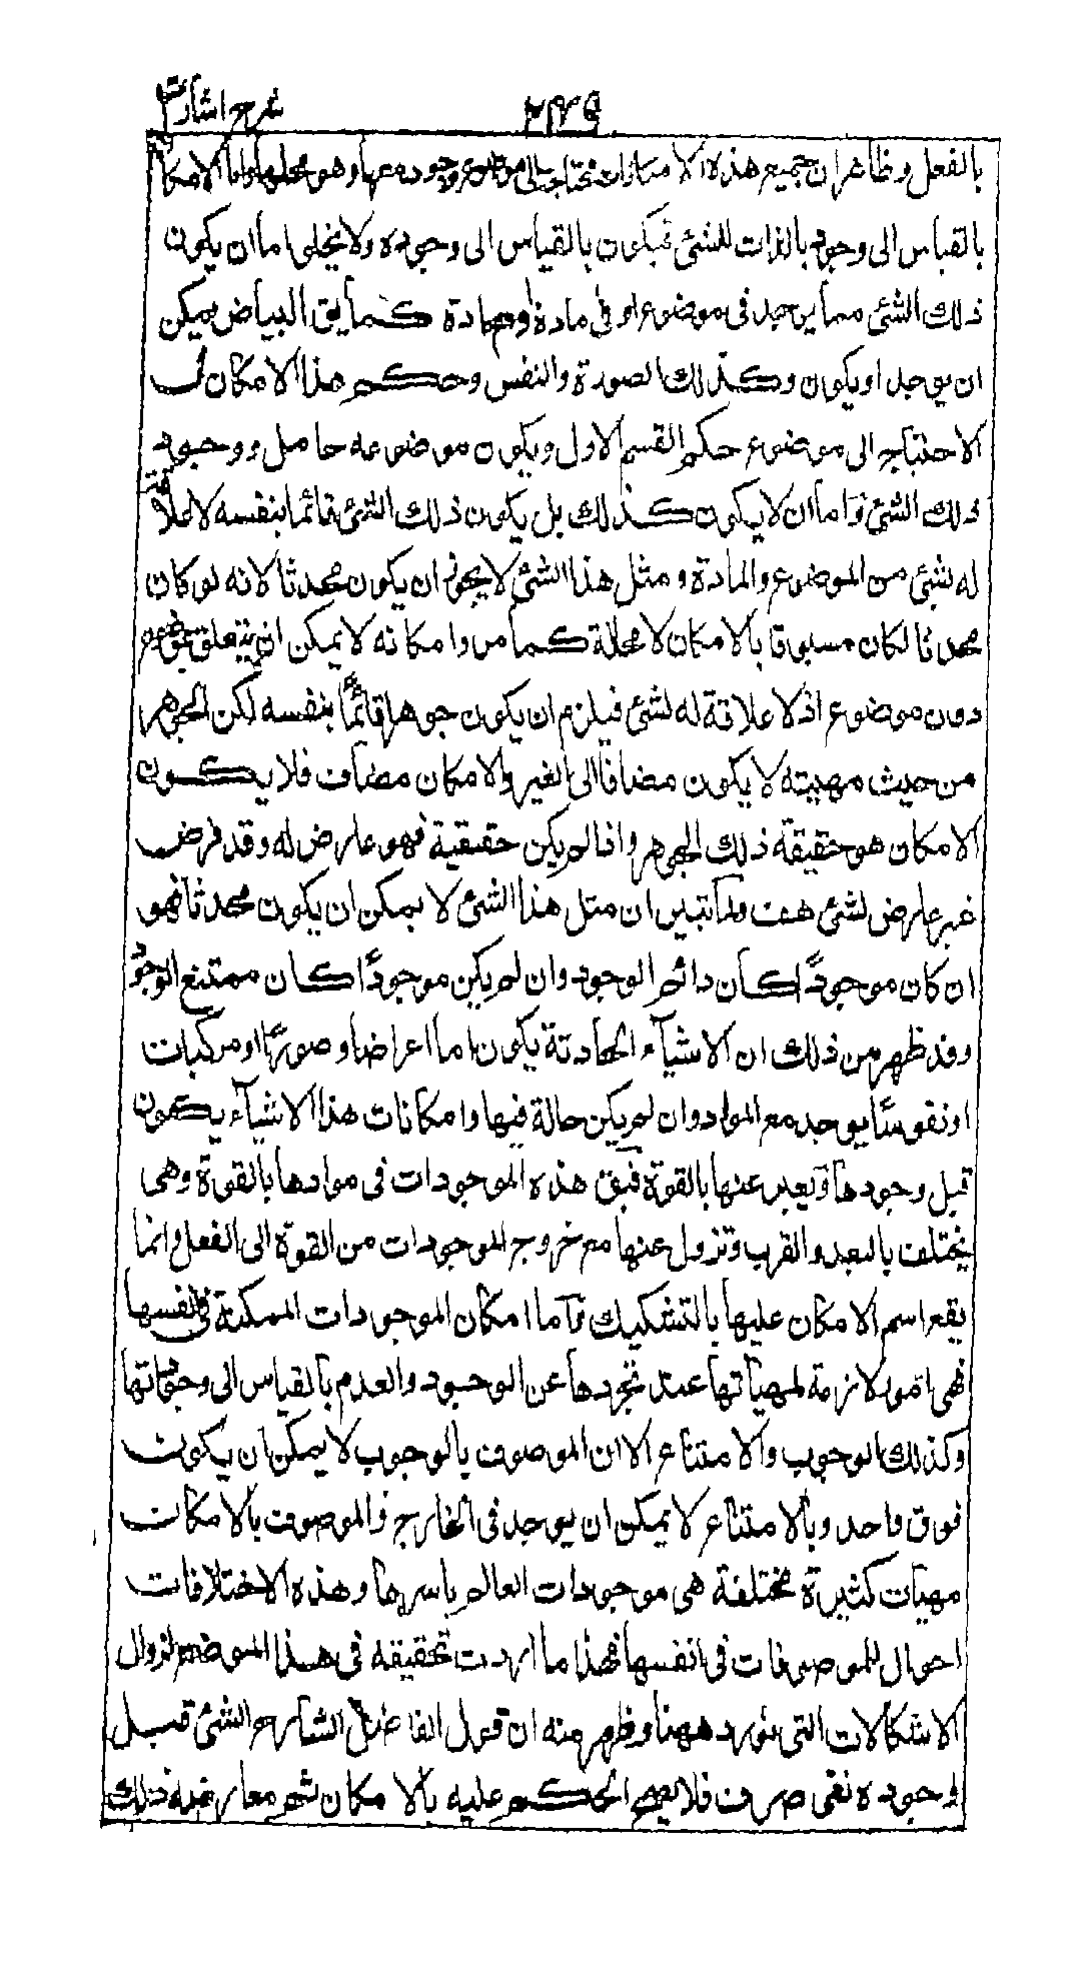 شرح اشارات
٢٣٩
بالفعل وظاهر ان جميع هذه الامكانات محتاجة الى موضوع موجود معها وهو محلها واما الامكان
بالقياس الى وجود بالذات للشئ فيكون بالقياس الى وجوده ولا يخلو اما ان يكون
ذلك الشئ مما يوجد فى موضوع او فى مادة او مع مادة كما يق البياض يمكن
ان يوجد او يكون وكذلك الصورة والنفس وحكم هذا الامكان فى
الاحتياج الى موضوع حكم القسم الاول ويكون موضوعه حامل وجود
ذلك الشئ واما ان لا يكون كذلك بل يكون ذلك الشئ قائما بنفسه لا علاقة
له بشئ من الموضوع والمادة ومثل هذا الشئ لا يجوز ان يكون محدثا لانه لو كان
محدثا لكان مسبوقا بالامكان لا محالة كما مر وامكانه لا يمكن ان يتعلق بموضوع
دون موضوع اذ لا علاقة له لشئ فيلزم ان يكون جوهرا قائمًا بنفسه لكن الجوهر
من حيث مهيته لا يكون مضافا الى الغير والامكان مضاف فلا يكون
الامكان هو حقيقة ذلك الجوهر واذا لم يكن حقيقية فهو عارض له وقد فرض
غير عارض لشئ هف ولما تبين ان مثل هذا الشئ لا يمكن ان يكون محدثا فهو
ان كان موجودًا كان دائم الوجود وان لم يكن موجودًا كان ممتنع الوجود
وقد ظهر من ذلك ان الاشياء الحادثة يكون اما اعراضا وصورًا او مركبات
او نفوسًا يوجد مع المواد وان لم يكن حالة فيها وامكانات هذا الاشياء يكون
قبل وجودها ويعبر عنها بالقوة فيق هذه الموجودات فى موادها بالقوة وهى
يختلف بالبعد والقرب وتزول عنها مع خروج الموجودات من القوة الى الفعل وانما
يقع اسم الامكان عليها بالتشكيك واما امكان الموجودات الممكنة فى انفسها
فهى امور لازمة لمهياتها عند تجردها عن الوجود والعدم بالقياس الى وجوداتها
وكذلك الوجوب والامتناع الا ان الموصوف بالوجوب لا يمكن ان يكون
فوق واحد وبالامتناع لا يمكن ان يوجد فى الخارج والموصوف بالامكان
مهيات كثيرة مختلفة هى موجودات العالم باسرها وهذه الاختلافات
احوال للموصوفات فى انفسها فهذا ما اردت تحقيقه فى هذا الموضع لزوال
الاشكالات التى تورد ههنا وظهر منه ان قول الفاضل الشارح الشئ قبل
وجوده نفى صرف فلا يصح الحكم عليه بالامكان ثم معارضة ذلك